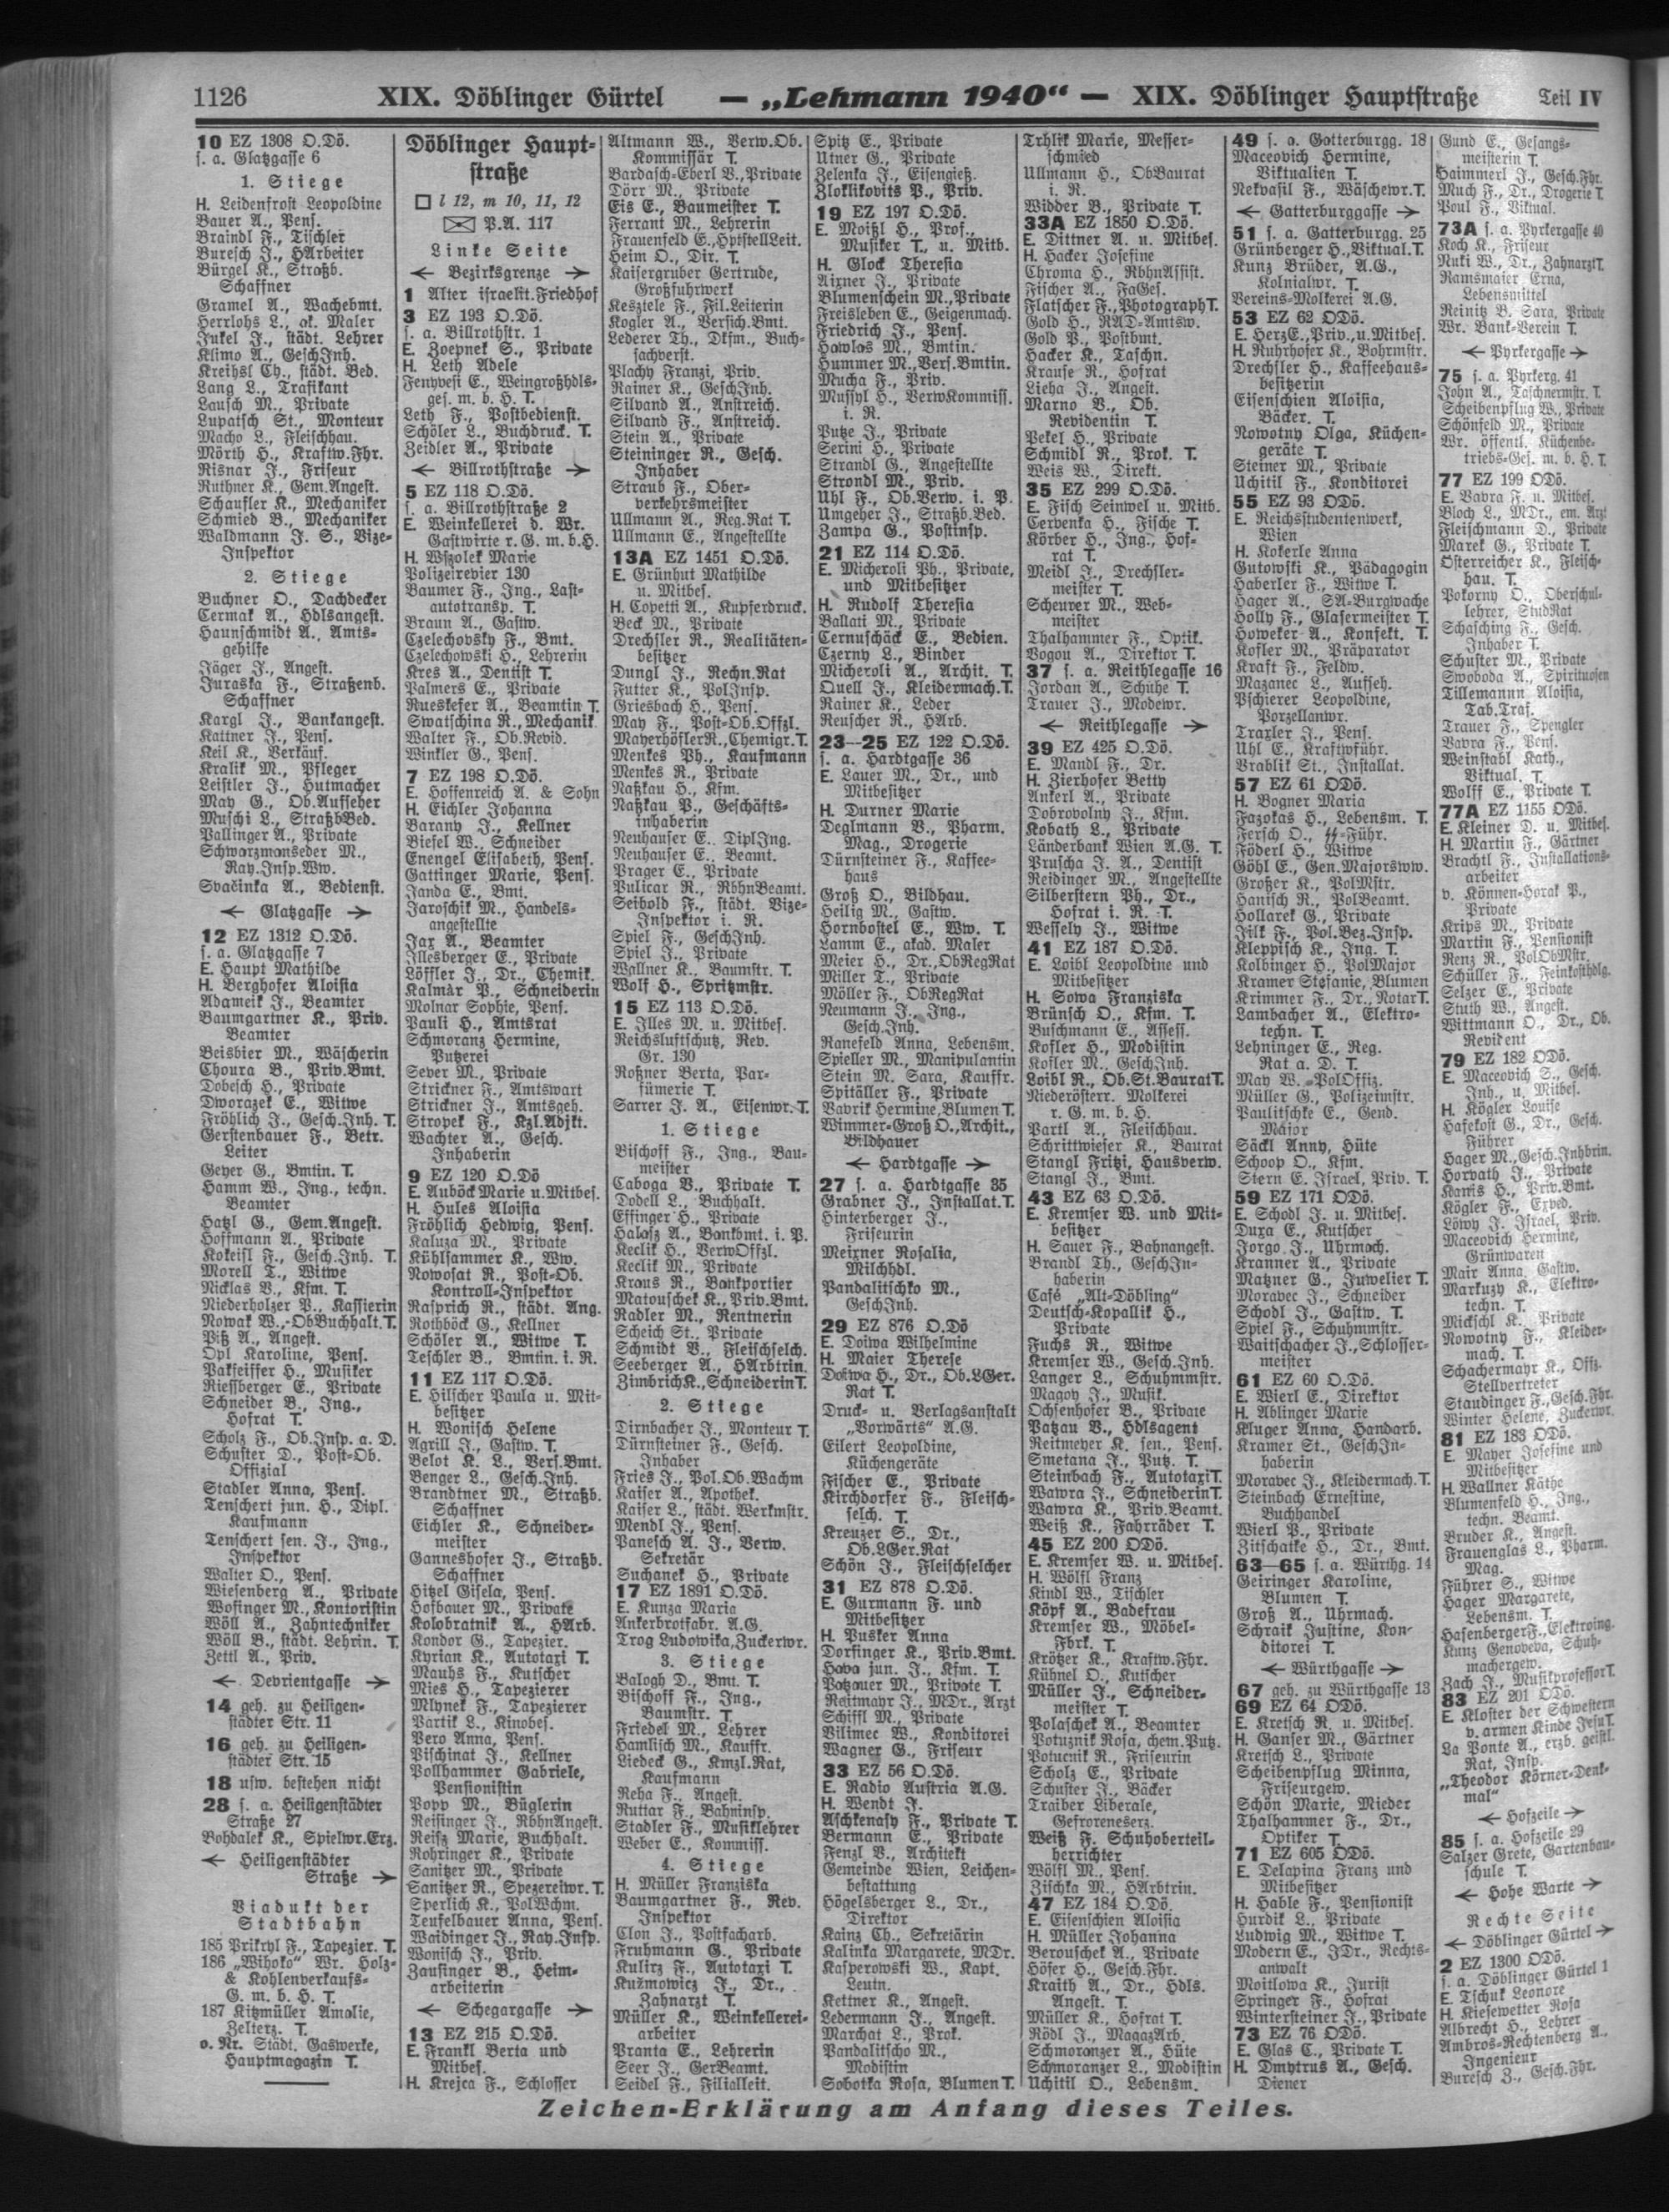 1126
XIX. Döblinger Gürtel — „Lehmann 1940“ — XIX. Döblinger Hauptstraße
Teil IV
10 EZ 1308 O.Dö.
s. a. Glatzgasse 6
1. Stiege
H. Leidenfrost Leopoldine
Bauer A., Pens.
Braindl F., Tischler
Buresch J., HArbeiter
Bürgel K., Straßb.
Schaffner
Gramel A., Wachebmt.
Herrlohs L., ak. Maler
Jukel J., städt. Lehrer
Klimo A., GeschInh.
Kreihsl Ch., städt. Bed.
Lang L., Trafikant
Lausch M., Private
Lupatsch St., Monteur
Macho L., Fleischhau.
Mörth H., Kraftw.Fhr.
Risnar J., Friseur
Ruthner K., Gem.Angest.
Schaufler K., Mechaniker
Schmied B., Mechaniker
Waldmann J. S., Vize-
Inspektor
2. Stiege
Buchner O., Dachdecker
Cermak A., Hdlsangest.
Haunschmidt A., Amts-
gehilfe
Jäger J., Angest.
Juraska F., Straßenb.
Schaffner
Kargl J., Bankangest.
Kattner J., Pens.
Keil K., Verkäuf.
Kralik M., Pfleger
Leistler J., Hutmacher
May G., Ob.Aufseher
Muschi L., StraßbBed.
Pallinger A., Private
Schwarzmanseder M.,
Ray.Insp.Ww.
Svačinka A., Bedienst.
← Glatzgasse →
12 EZ 1312 O.Dö.
s. a. Glatzgasse 7
E. Haupt Mathilde
H. Berghofer Aloisia
Adameik J., Beamter
Baumgartner K., Priv.
Beamter
Beisbier M., Wäscherin
Choura B., Priv.Bmt.
Dobesch H., Private
Dworazek E., Witwe
Fröhlich J., Gesch.Inh. T.
Gerstenbauer F., Betr.
Leiter
Geyer G., Bmtin. T.
Hamm W., Ing., techn.
Beamter
Hatzl G., Gem.Angest.
Hoffmann A., Private
Kokeisl F., Gesch.Inh. T.
Morell T., Witwe
Nicklas V., Kfm. T.
Niederholzer P., Kassierin
Nowak W., ObBuchhalt.T.
Piß A., Angest.
Opl Karoline, Pens.
Pakfeiffer H., Musiker
Riessberger E., Private
Schneider B., Ing.,
Hofrat T.
Scholz F., Ob.Insp. a. D.
Schuster D., Post-Ob.
Offizial
Stadler Anna, Pens.
Tenschert jun. H., Dipl.
Kaufmann
Tenschert sen. J., Ing.,
Inspektor
Walter O., Pens.
Wiesenberg A., Private
Wofinger M., Kontoristin
Wöll A., Zahntechniker
Wöll B., städt. Lehrin. T.
Zettl A., Priv.
← Devrientgasse →
14 geh. zu Heiligen-
städter Str. 11
16 geh. zu Heiligen-
städter Str. 15
18 usw. bestehen nicht
28 s. a. Heiligenstädter
Straße 27
Bohdalek K., Spielwr.Erz.
← Heiligenstädter
Straße →
Viadukt der
Stadtbahn
185 Prikryl F., Tapezier. T.
186 „Wihoko“ Wr. Holz-
& Kohlenverkaufs-
G. m. b. H. T.
187 Kitzmüller Amalie,
Zelterz. T.
o. Nr. Städt. Gaswerke,
Hauptmagazin T.
Döblinger Haupt-
straße
l 12, m 10, 11, 12
P.A. 117
Linke Seite
← Bezirksgrenze →
1 Alter israelit.Friedhof
3 EZ 193 O.Dö.
s. a. Billrothstr. 1
E. Zoepnek S., Private
H. Leth Adele
Fenyvesi E., Weingroßhdls-
ges. m. b. H. T.
Leth F., Postbedienst.
Schöler L., Buchdruck. T.
Zeidler A., Private
← Billrothstraße →
5 EZ 118 O.Dö.
s. a. Billrothstraße 2
E. Weinkellerei d. Wr.
Gastwirte r. G. m. b.H.
H. Wszolek Marie
Polizeirevier 130
Baumer F., Ing., Last-
autotransp. T.
Braun A., Gastw.
Czelechovsky F., Bmt.
Czelechowski H., Lehrerin
Kres A., Dentist T.
Palmers E., Private
Rueskefer A., Beamtin T.
Swatschina R., Mechanik.
Walter F., Ob.Revid.
Winkler G., Pens.
7 EZ 198 O.Dö.
E. Hoffenreich A. & Sohn
H. Eichler Johanna
Barany J., Kellner
Biesel W., Schneider
Enengel Elisabeth, Pens.
Gattinger Marie, Pens.
Janda E., Bmt.
Jaroschik M., Handels-
angestellte
Jax A., Beamter
Illesberger E., Private
Löffler J., Dr., Chemik.
Kalmár P., Schneiderin
Molnar Sophie, Pens.
Pauli H., Amtsrat
Schmoranz Hermine,
Putzerei
Sever M., Private
Strickner F., Amtswart
Strickner J., Amtsgeh.
Stropek F., Kzl.Adjkt.
Wachter A., Gesch.
Inhaberin
9 EZ 120 O.Dö
E. Auböck Marie u.Mitbes.
H. Hules Aloisia
Fröhlich Hedwig, Pens.
Kaluza M., Private
Kühlsammer K., Ww.
Nowosat R., Post-Ob.
Kontroll-Inspektor
Rasprich R., städt. Ang.
Rothböck G., Kellner
Schöler A., Witwe T.
Teschler B., Bmtin. i. R.
11 EZ 117 O.Dö.
E. Hilscher Paula u. Mit-
besitzer
H. Wonisch Helene
Agrill J., Gastw. T.
Belot K. L., Vers.Bmt.
Benger L., Gesch.Inh.
Brandtner M., Straßb.
Schaffner
Eichler K., Schneider-
meister
Ganneshofer J., Straßb.
Schaffner
Hitzel Gisela, Pens.
Hofbauer M., Private
Kolobratnik A., HArb.
Kondor G., Tapezier.
Kyrian K., Autotaxi T.
Mauhs F., Kutscher
Mies H., Tapezierer
Mlynek F., Tapezierer
Partik L., Kinobes.
Pero Anna, Pens.
Pischinat J., Kellner
Pollhammer Gabriele,
Pensionistin
Popp M., Büglerin
Reisinger J., RbhnAngest.
Reisz Marie, Buchhalt.
Rohringer K., Private
Sanitzer M., Private
Sanitzer R., Spezereiwr. T.
Sperlich K., PolWchm.
Teufelbauer Anna, Pens.
Waidinger J., Ray.Insp.
Wonisch J., Priv.
Zausinger B., Heim-
arbeiterin
← Schegargasse →
13 EZ 215 O.Dö.
E. Frankl Berta und
Mitbes.
H. Krejca F., Schlosser
Altmann W., Verw.Ob.
Kommissär T.
Bardasch-Eberl V., Private
Dörr M., Private
Eis E., Baumeister T.
Ferrant M., Lehrerin
Frauenfeld E., HptstellLeit.
Heim O., Dir. T.
Kaisergruber Gertrude,
Großfuhrwerk
Kesziele F., Fil.Leiterin
Kogler A., Versich.Bmt.
Lederer Th., Dksm., Buch-
sachverst.
Plachy Franzi, Priv.
Rainer K., GeschInh.
Silvand A., Anstreich.
Silvand F., Anstreich.
Stein A., Private
Steininger R., Gesch.
Inhaber
Straub F., Ober-
verkehrsmeister
Ullmann A., Reg.Rat T.
Ullmann E., Angestellte
13A EZ 1451 O.Dö.
E. Grünhut Mathilde
u. Mitbes.
H. Copetti A., Kupferdruck.
Beck M., Private
Drechsler R., Realitäten-
besitzer
Dungl J., Rechn.Rat
Futter K., PolInsp.
Griesbach H., Pens.
May F., Post-Ob.Offzl.
MayerhöflerR.,Chemigr.T.
Menkes Ph., Kaufmann
Menkes R., Private
Naßkau H., Kfm.
Naßkau P., Geschäfts-
inhaberin
Neuhauser E., DiplIng.
Neuhauser E., Beamt.
Prager E., Private
Pulicar R., RbhnBeamt.
Seibold F., städt. Vize-
Inspektor i. R.
Spiel F., GeschInh.
Spiel J., Private
Wallner K., Baumstr. T.
Wolf H., Spritzmstr.
15 EZ 113 O.Dö.
E. Illes M. u. Mitbes.
Reichsluftschutz, Rev.
Gr. 130
Roßner Berta, Par-
fümerie T.
Sarrer J. A., Eisenwr. T.
1. Stiege
Bischoff F., Ing., Bau-
meister
Caboga B., Private T.
Dodell L., Buchhalt.
Effinger H., Private
Halasz A., Bankbmt. i. P.
Keclik H., VerwOffzl.
Keclik M., Private
Kraus R., Bankportier
Matouschek K., Priv.Bmt.
Radler M., Rentnerin
Scheich St., Private
Schmidt V., Fleischselch.
Seeberger A., HArbtrin.
ZimbrichK.,SchneiderinT.
2. Stiege
Dirnbacher J., Monteur T.
Dürnsteiner F., Gesch.
Inhaber
Fries J., Pol.Ob.Wachm
Kaiser A., Apothek.
Kaiser L., städt. Werkmstr.
Mendl J., Pens.
Panesch A. J., Verw.
Sekretär
Suchanek H., Private
17 EZ 1891 O.Dö.
E. Kunza Maria
Ankerbrotfabr. A.G.
Trog Ludowika, Zuckerwr.
3. Stiege
Balogh D., Bmt. T.
Bischoff F., Ing.,
Baumstr. T.
Friedel M., Lehrer
Hamlisch M., Kauffr.
Liedeck G., Kmzl.Rat,
Kaufmann
Reha F., Angest.
Ruttar F., Bahninsp.
Stadler F., Musiklehrer
Weber E., Kommiss.
4. Stiege
H. Müller Franziska
Baumgartner F., Rev.
Inspektor
Clon J., Postfacharb.
Fruhmann G., Private
Kulirz F., Autotaxi T.
Kužmowicz J., Dr.,
Zahnarzt T.
Müller K., Weinkellerei-
arbeiter
Pranta E., Lehrerin
Seer J., GerBeamt.
Seidel F., Filialleit.
Spitz E., Private
Utner G., Private
Zelenka J., Eisengieß.
Zloklikovits P., Priv.
19 EZ 197 O.Dö.
E. Moißl H., Prof.,
Musiker T., u. Mitb.
H. Glock Theresia
Aixner J., Private
Blumenschein M.,Private
Freisleben E., Geigenmach.
Friedrich J., Pens.
Howlas M., Bmtin.
Hummer M.,Vers.Bmtin.
Mucha F., Priv.
Mussyl H., VerwKommiss.
i. R.
Putze J., Private
Serini H., Private
Strandl G., Angestellte
Strondl M., Priv.
Uhl F., Ob.Verw. i. P.
Umgeher J., Straßb.Bed.
Zampa G., Postinsp.
21 EZ 114 O.Dö.
E. Micheroli Ph., Private,
und Mitbesitzer
H. Rudolf Theresia
Ballati M., Private
Cernuschäck E., Bedien.
Czerny L., Binder
Micheroli A., Archit. T.
Quell J., Kleidermach.T.
Rainer K., Leder
Reuscher R., HArb.
23—25 EZ 122 O.Dö.
s. a. Hardtgasse 36
E. Lauer M., Dr., und
Mitbesitzer
H. Durner Marie
Deglmann V., Pharm.
Mag., Drogerie
Dürnsteiner F., Kaffee-
haus
Groß O., Bildhau.
Heilig M., Gastw.
Hornbostel E., Ww. T.
Lamm E., akad. Maler
Meier H., Dr.,ObRegRat
Miller T., Private
Möller F., ObRegRat
Neumann J., Ing.,
Gesch.Inh.
Ranefeld Anna, Lebensm.
Spieller M., Manipulantin
Stein M. Sara, Kauffr.
Spitäller F., Private
Vavrik Hermine,Blumen T.
Wimmer-Groß O.,Archit.,
Bildhauer
← Hardtgasse →
27 s. a. Hardtgasse 35
Grabner J., Installat.T.
Hinterberger J.,
Friseurin
Meixner Rosalia,
Milchhdl.
Pandalitschko M.,
GeschInh.
29 EZ 876 O.Dö
E. Doiwa Wilhelmine
H. Maier Therese
Doiwa H., Dr., Ob.LGer.
Rat T.
Druck- u. Verlagsanstalt
„Vorwärts“ A.G.
Eilert Leopoldine,
Küchengeräte
Fischer E., Private
Kirchdorfer F., Fleisch-
selch. T.
Kreuzer S., Dr.,
Ob.LGer.Rat
Schön J., Fleischselcher
31 EZ 878 O.Dö.
E. Gurmann F. und
Mitbesitzer
H. Pusker Anna
Dorfinger K., Priv.Bmt.
Hava jun. J., Kfm. T.
Patzauer M., Private T.
Reitmayr J., MDr., Arzt
Schiffl M., Private
Vilimec W., Konditorei
Wagner G., Friseur
33 EZ 56 O.Dö.
E. Radio Austria A.G.
H. Wendt J.
Aschkenasy F., Private T.
Bermann E., Private
Fenzl V., Architekt
Gemeinde Wien, Leichen-
bestattung
Högelsberger L., Dr.,
Direktor
Kainz Ch., Sekretärin
Kalinka Margarete, MDr.
Kasperowski W., Kapt.
Leutn.
Kettner K., Angest.
Ledermann J., Angest.
Marchat L., Prok.
Pandalitscho M.,
Modistin
Sobotka Rosa, Blumen T.
Trhlik Marie, Messer-
schmied
Ullmann H., ObBaurat
i. R.
Widder B., Private T.
33A EZ 1850 O.Dö.
E. Dittner A. u. Mitbes.
H. Hacker Josefine
Chroma H., RbhnAssist.
Fischer A., FaGes.
Flatscher F., PhotographT.
Gold H., RAD-Amtsw.
Gold P., Postbmt.
Hacker K., Taschn.
Krause R., Hofrat
Lieha J., Angest.
Marno V., Ob.
Revidentin T.
Pekel H., Private
Schmidl R., Prok. T.
Weis W., Direkt.
35 EZ 299 O.Dö.
E. Fisch Seinwel u. Mitb.
Cervenka H., Fische T.
Körber H., Ing., Hof-
rat T.
Meidl J., Drechsler-
meister T.
Scheurer M., Web-
meister
Thalhammer F., Optik.
Vogou A., Direktor T.
37 s. a. Reithlegasse 16
Jordan A., Schuhe T.
Trauer J., Modewr.
← Reithlegasse →
39 EZ 425 O.Dö.
E. Mandl F., Dr.
H. Zierhofer Betty
Ankerl A., Private
Dobrovolny J., Kfm.
Kobath L., Private
Länderbank Wien A.G. T.
Pruscha J. A., Dentist
Reidinger M., Angestellte
Silberstern Ph., Dr.,
Hofrat i. R. T.
Wessely J., Witwe
41 EZ 187 O.Dö.
E. Loibl Leopoldine und
Mitbesitzer
H. Sowa Franziska
Brünsch O., Kfm. T.
Buschmann E., Assess.
Kofler H., Modistin
Kofler M., GeschInh.
Loibl R., Ob.St.BauratT.
Niederösterr. Molkerei
r. G. m. b. H.
Partl A., Fleischhau.
Schrittwieser K., Baurat
Stangl Fritzi, Hausverw.
Stangl J., Bmt.
43 EZ 63 O.Dö.
E. Kremser W. und Mit-
besitzer
H. Sauer F., Bahnangest.
Brandl Th., GeschIn-
haberin
Café „Alt-Döbling“
Deutsch-Kopallik H.,
Private
Fuchs R., Witwe
Kremser W., Gesch.Inh.
Langer L., Schuhmstr.
Magoy J., Musik.
Ochsenhofer B., Private
Patzau B., Hdlsagent
Reitmeyer K. sen., Pens.
Smetana J., Putz. T.
Steinbach F., AutotaxiT.
Wawra J., SchneiderinT.
Wawra K., Priv.Beamt.
Weiß K., Fahrräder T.
45 EZ 200 ODö.
E. Kremser W. u. Mitbes.
H. Wölfl Franz
Kindl W., Tischler
Köpf A., Badefrau
Kremser W., Möbel-
Fbrk. T.
Krötzer K., Kraftw.Fhr.
Kühnel O., Kutscher
Müller J., Schneider-
meister T.
Polaschek A., Beamter
Potuznik Rosa, chem.Putz.
Potucnik R., Friseurin
Scholz E., Private
Schuster J., Bäcker
Traiber Liberale,
Gefroreneserz.
Weiß F. Schuhoberteil-
herrichter
Wölfl M., Pens.
Zischka M., HArbtrin.
47 EZ 184 O.Dö.
E. Eisenschien Aloisia
H. Müller Johanna
Berouschek A., Private
Höfer H., Gesch.Fhr.
Kraith A., Dr., Hdls.
Angest. T.
Müller K., Hofrat T.
Rödl J., MagazArb.
Schmoranzer A., Hüte
Schmoranzer L., Modistin
Uchitil O., Lebensm.
49 s. a. Gatterburgg. 18
Maceovich Hermine,
Viktualien T.
Nekvasil F., Wäschewr.T.
← Gatterburggasse →
51 s. a. Gatterburgg. 25
Grünberger H.,Viktual.T.
Kunz Brüder, A.G.,
Kolnialwr. T.
Vereins-Molkerei A.G.
53 EZ 62 ODö.
E. HerzE.,Priv.,u.Mitbes.
H. Ruhrhofer K., Bohrmstr.
Drechsler H., Kaffeehaus-
besitzerin
Eisenschien Aloisia,
Bäcker. T.
Nowotny Olga, Küchen-
geräte T.
Steiner M., Private
Uchitil F., Konditorei
55 EZ 93 O.Dö.
E. Reichsstudentenwerk,
Wien
H. Kokerle Anna
Gutowski K., Pädagogin
Haberler F., Witwe T.
Hager A., SA-Burgwache
Holly F., Glasermeister T.
Howeker A., Konfekt. T.
Kofler M., Präparator
Kraft F., Feldw.
Mazanec L., Aufseh.
Pschierer Leopoldine,
Porzellanwr.
Traxler J., Pens.
Uhl E., Kraftwführ.
Vrablik St., Installat.
57 EZ 61 ODö.
H. Bogner Maria
Fazokas H., Lebensm. T.
Fersch O., SS-Führ.
Föderl H., Witwe
Göhl E., Gen.Majorsww.
Großer K., PolMstr.
Hanisch R., PolBeamt.
Hollarek G., Private
Jilk F., Pol.Bez.Insp.
Kleppisch K., Ing. T.
Kolbinger H., PolMajor
Kramer Stefanie, Blumen
Krimmer F., Dr., NotarT.
Lambacher A., Elektro-
techn. T.
Lehninger E., Reg.
Rat a. D. T.
May W., PolOffiz.
Müller G., Polizeimstr.
Paulitschke E., Gend.
Major
Säckl Anny, Hüte
Schoop O., Kfm.
Stern E. Israel, Priv. T.
59 EZ 171 ODö.
E. Schodl J. u. Mitbes.
Duxa E., Kutscher
Jorgo J., Uhrmach.
Kranner A., Private
Matzner G., Juwelier T.
Moravec J., Schneider
Schodl J., Gastw. T.
Spiel F., Schuhmstr.
Waitschacher J.,Schlosser-
meister
61 EZ 60 O.Dö.
E. Wierl E., Direktor
H. Ablinger Marie
Kluger Anna, Handarb.
Kramer St., GeschIn-
haberin
Moravec J., Kleidermach.T.
Steinbach Ernestine,
Buchhandel
Wierl P., Private
Zitschatke H., Dr., Bmt.
63—65 s. a. Würthg. 14
Geiringer Karoline,
Blumen T.
Groß A., Uhrmach.
Schraik Justine, Kon-
ditorei T.
← Würthgasse →
67 geh. zu Würthgasse 13
69 EZ 64 ODö.
E. Kretsch R. u. Mitbes.
H. Ganser M., Gärtner
Kretsch L., Private
Scheibenpflug Minna,
Friseurgew.
Schön Marie, Mieder
Thalhammer F., Dr.,
Optiker T.
71 EZ 605 ODö.
E. Delapina Franz und
Mitbesitzer
H. Hable F., Pensionist
Hurdik L., Private
Ludwig M., Witwe T.
Modern E., JDr., Rechts-
anwalt
Moitlowa K., Jurist
Springer F., Hofrat
Wintersteiner J., Private
73 EZ 76 ODö.
E. Glas C., Private T.
H. Dmytrus A., Gesch.
Diener
Gund E., Gesangs-
meisterin T.
Haimmerl J., Gesch.Fhr.
Much F., Dr., Drogerie T.
Poul F., Viktual.
73A s. a. Pyrkergasse 40
Koch K., Friseur
Nuki W., Dr., ZahnarztT.
Ramsmaier Erna,
Lebensmittel
Reinitz B. Sara, Private
Wr. Bank-Verein T.
← Pyrkergasse →
75 s. a. Pyrkerg. 41
John A., Taschnermstr. T.
Scheibenpflug W., Private
Schönfeld M., Private
Wr. öffentl. Küchenbe-
triebs-Ges. m. b. H. T.
77 EZ 199 ODö.
E. Vavra F. u. Mitbes.
Bloch L., MDr., em. Arzt
Fleischmann D., Private
Marek G., Private T.
Österreicher K., Fleisch-
hau. T.
Pokorny O., Oberschul-
lehrer, StudRat
Schasching F., Gesch.
Inhaber T.
Schuster M., Private
Swoboda A., Spirituosen
Tillemannn Aloisia,
Tab.Traf.
Trauer F., Spengler
Vavra F., Pens.
Weinstabl Kath.,
Viktual. T.
Wolff E., Private T.
77A EZ 1155 ODö.
E. Kleiner D. u. Mitbes.
H. Martin F., Gärtner
Brachtl F., Installations-
arbeiter
v. Können-Horak P.,
Private
Krips M., Private
Martin F., Pensionist
Renz R., PolObMstr.
Schüller F., Feinkosthdlg.
Selzer E., Private
Stuth W., Angest.
Wittmann O., Dr., Ob.
Revident
79 EZ 182 ODö.
E. Maceovich S., Gesch.
Inh., u. Mitbes.
H. Kögler Louise
Hafekost G., Dr., Gesch.
Führer
Hager M.,Gesch.Inhbrin.
Horvath J., Private
Kanis H., Priv.Bmt.
Kögler F., Exped.
Löwy J. Israel, Priv.
Maceovich Hermine,
Grünwaren
Mair Anna, Gastw.
Markuzy K., Elektro-
techn. T.
Mickschl K., Private
Nowotny F., Kleider-
mach. T.
Schachermayr K., Offz.
Stellvertreter
Staudinger F.,Gesch.Fhr.
Winter Helene, Zuckerwr.
81 EZ 183 ODö.
E. Mayer Josefine und
Mitbesitzer
H. Wallner Käthe
Blumenfeld H., Ing.,
techn. Beamt.
Bruder K., Angest.
Frauenglas L., Pharm.
Mag.
Führer S., Witwe
Hager Margarete,
Lebensm. T.
HasenbergerF.,Elektroing.
Kunz Genoveva, Schuh-
machergew.
Zach J., MusikprofessorT.
83 EZ 201 ODö.
E. Kloster der Schwestern
v. armen Kinde JesuT.
La Ponte A., erzb. geistl.
Rat, Insp.
„Theodor Körner-Denk-
mal“
← Hofzeile →
85 s. a. Hofzeile 29
Salzer Grete, Gartenbau-
schule T.
← Hohe Warte →
Rechte Seite
← Döblinger Gürtel →
2 EZ 1300 ODö.
s. a. Döblinger Gürtel 1
E. Tschuk Leonore
H. Kiesewetter Rosa
Albrecht H., Lehrer
Ambros-Rechtenberg A.,
Ingenieur
Buresch Z., Gesch.Fhr.
Zeichen-Erklärung am Anfang dieses Teiles.